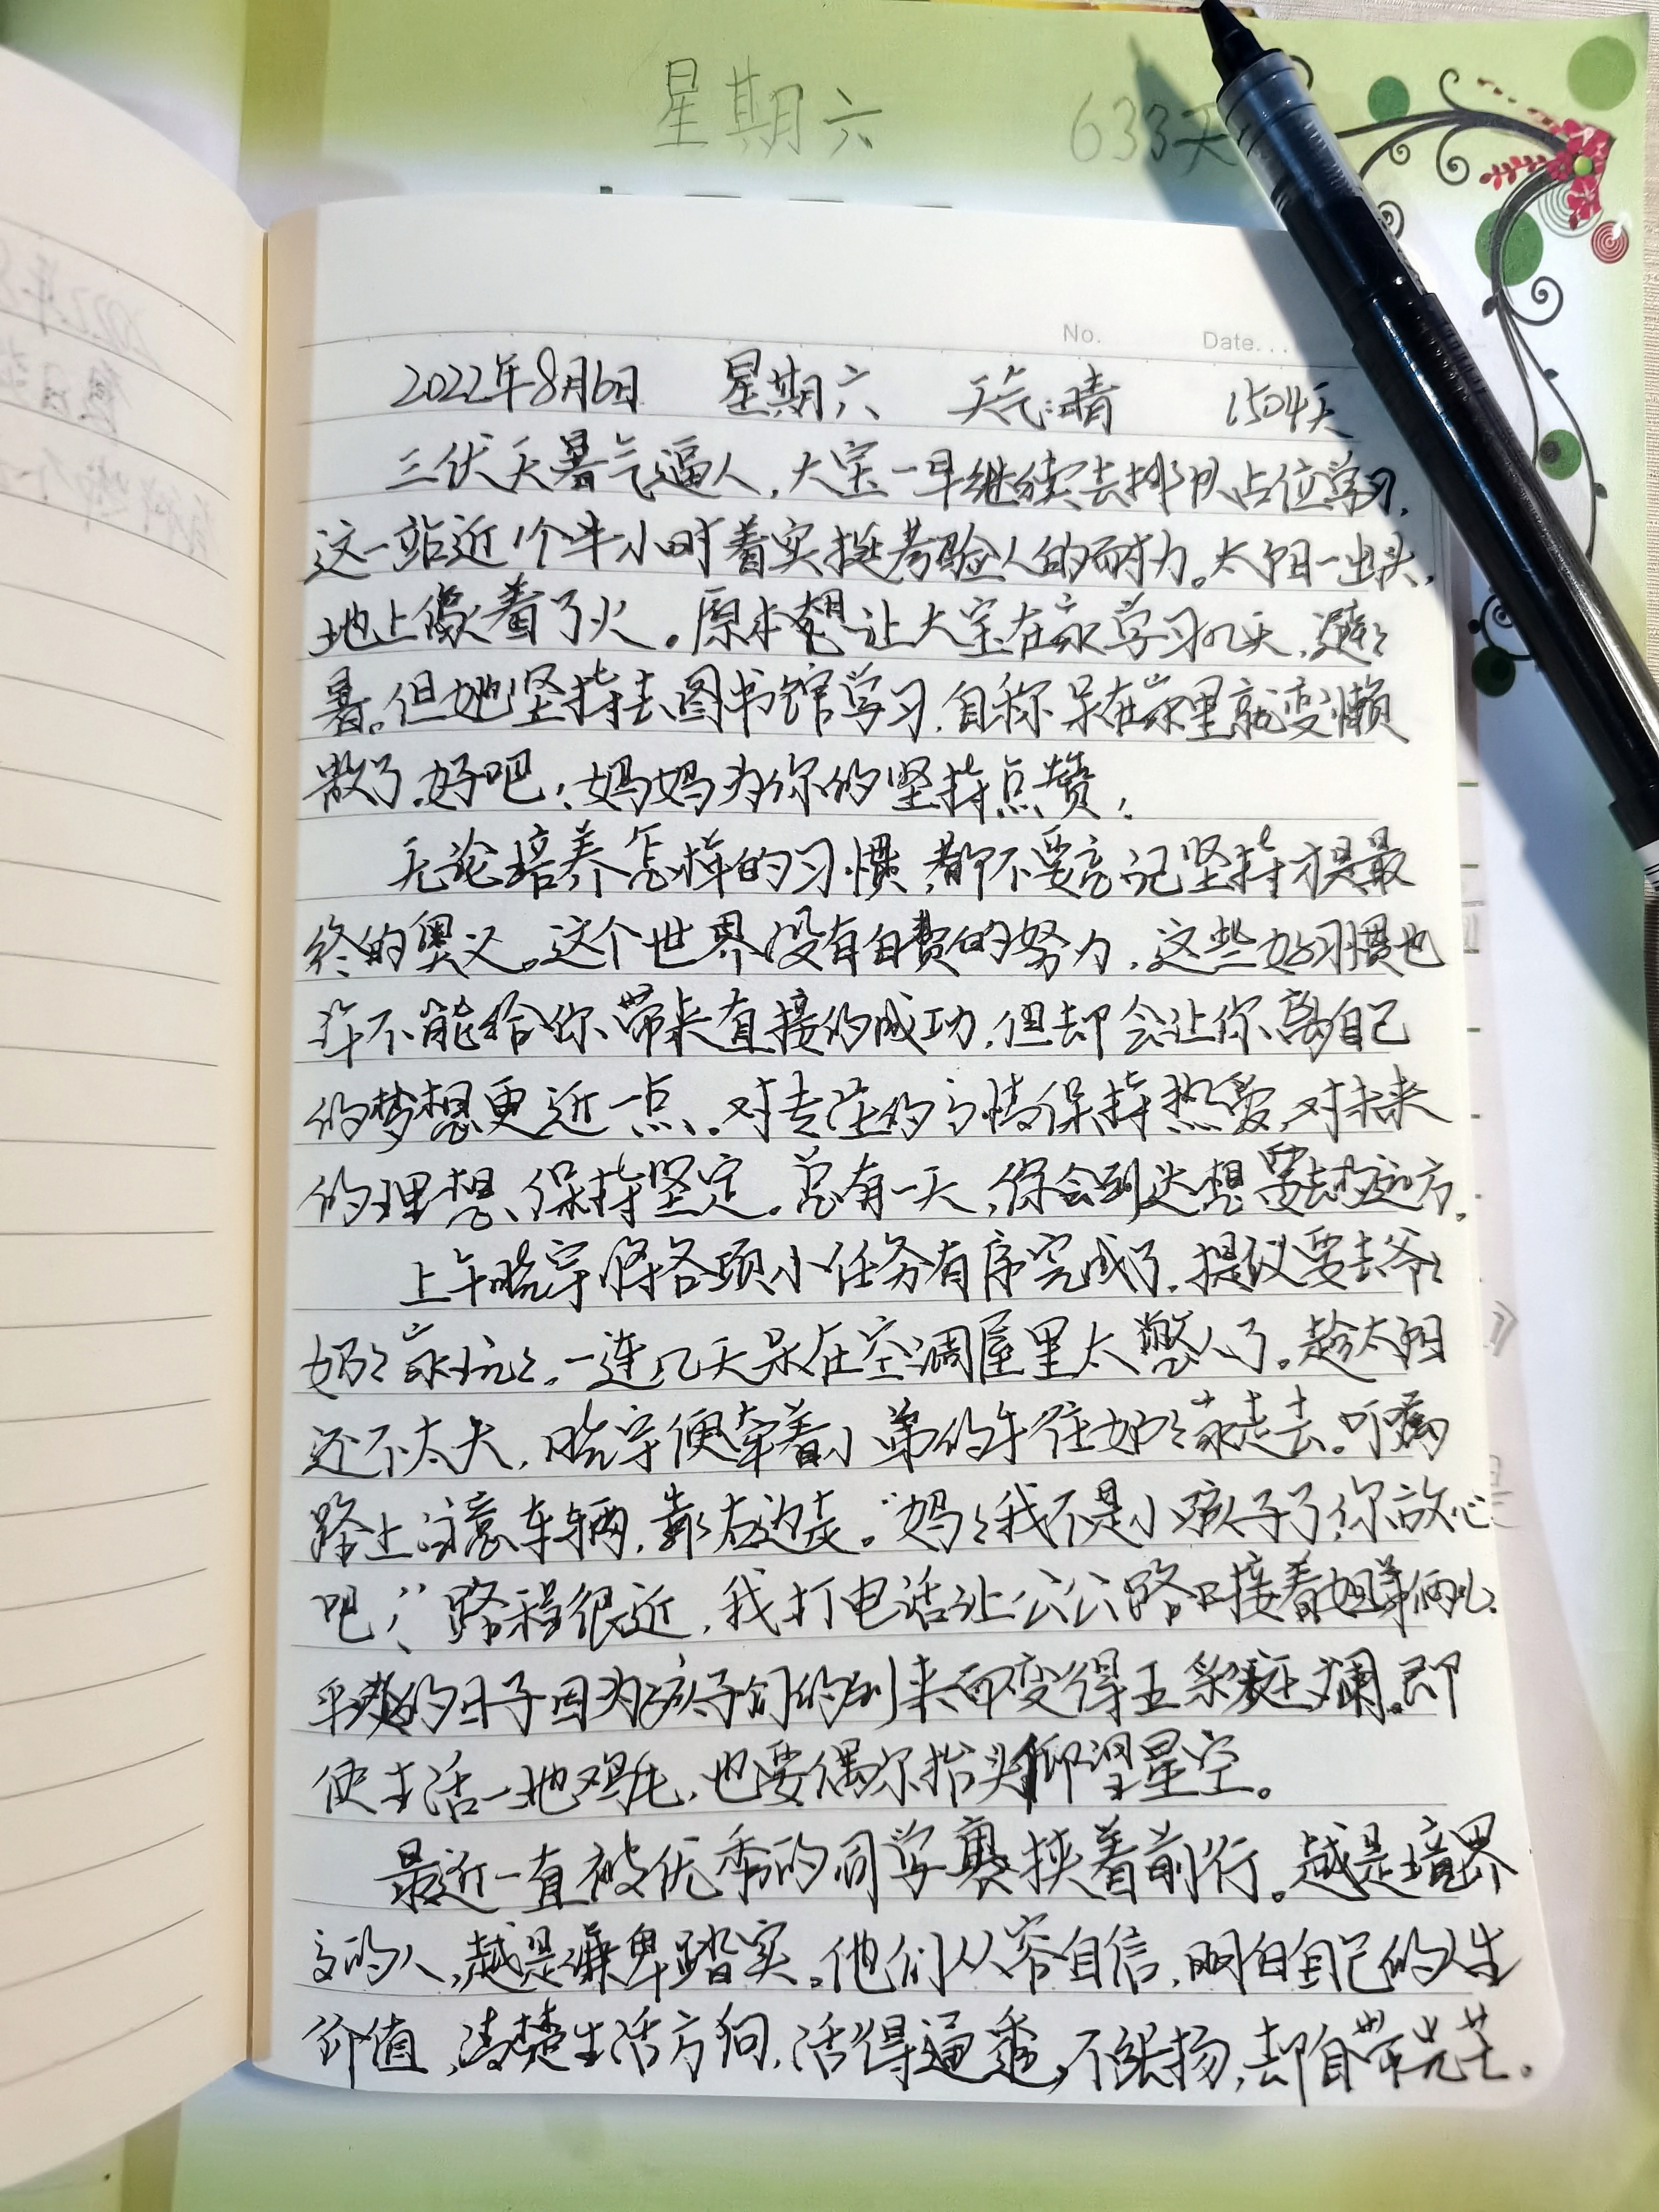 星期六 633天
No. Date...
2022年8月6日 星期六 天气:晴 1504天
三伏天暑气逼人,大宝一早继续去排队占位学习,
这一站近1个半小时着实挺考验人的耐力。太阳一出头,
地上像着了火。原本想让大宝在家学习几天,避避
暑。但她坚持去图书馆学习,自称呆在家里就变懒
散了。好吧!妈妈为你的坚持点赞!
无论培养怎样的习惯,都不要忘记坚持才是最
终的奥义。这个世界没有白费的努力,这些好习惯也
许不能给你带来直接的成功,但却会让你离自己
的梦想更近一点。对专注的事情保持热爱,对未来
的理想、保持坚定。总有一天,你会到达想要去的远方。
上午晓宇将各项小任务有序完成了,提议要去爷爷
奶奶家玩玩。一连几天呆在空调屋里太憋人了。趁太阳
还不太大,晓宇便牵着小弟的手往奶奶家走去。叮嘱
路上注意车辆,靠右边走。“妈妈我不是小孩子了,你放心
吧!”路程很近,我打电话让公公路口接着姐弟俩儿。
平淡的日子因为孩子们的到来而变得五彩斑斓。即
使生活一地鸡毛,也要偶尔抬头仰望星空。
最近一直被优秀的同学裹挟着前行。越是境界
高的人,越是谦卑踏实。他们从容自信,明白自己的人生
价值,清楚生活方向,活得通透,不张扬,却自带光芒。